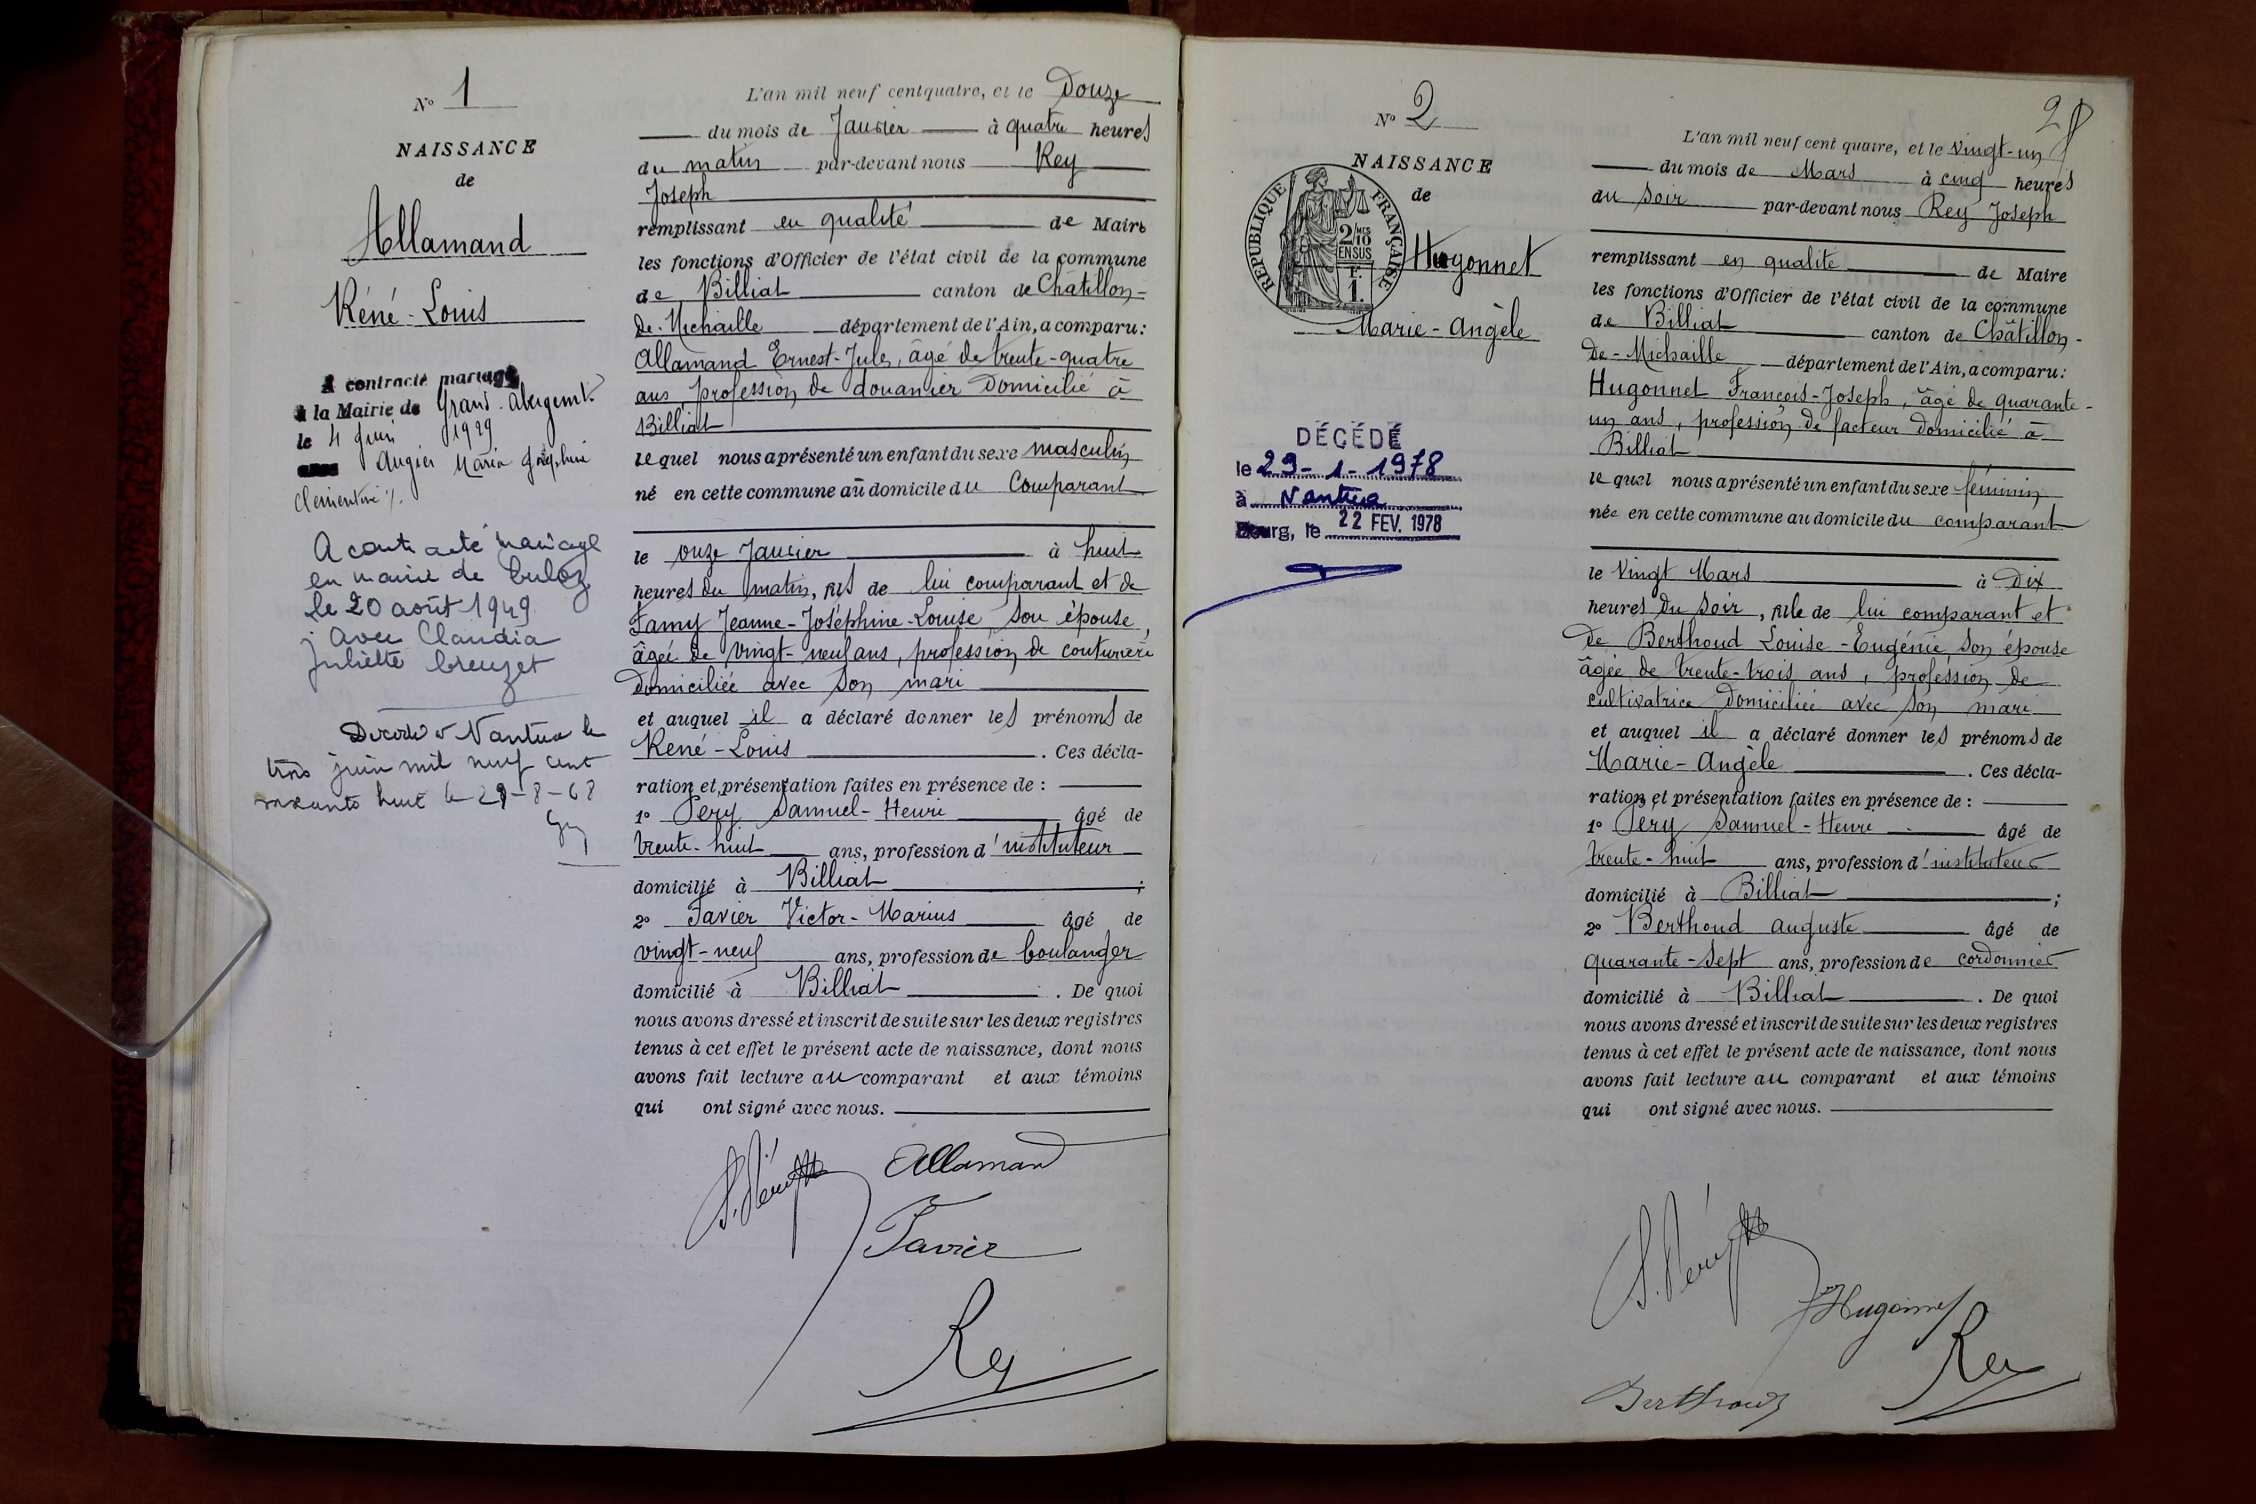 N° 1
NAISSANCE
de
Allamand
Réné-Louis
A contracté mariage
à la Mairie de Grand-Abergement
le 4 juin 1929
Augier Maria Joséphine
Clementine /.
A contracté mariage
en mairie de Culoz
le 20 août 1949
avec Claudia
Juliette Creuzet
Décédé à Nantua le
trois juin mil neuf cent
soixante huit le 29-8-68
L'an mil neuf cent quatre, et le Douze
du mois de Janvier à quatre heures
du matin par-devant nous Rey
Joseph
remplissant en qualité de Maire
les fonctions d'Officier de l'état civil de la commune
de Billiat canton de Châtillon-
De-Michaille département de l'Ain, a comparu:
Allamand Ernest-Jules, âgé de trente-quatre
ans, profession de douanier Domicilié à
Billiat
lequel nous a présenté un enfant du sexe masculin
né en cette commune au domicile du Comparant
le onze Janvier à huit
heures du matin, fils de lui comparant et de
Famy Jeanne-Joséphine-Louise, son épouse,
âgée de vingt-neuf ans, profession de couturière
Domiciliée avec son mari
et auquel il a déclaré donner les prénoms de
René-Louis . Ces décla-
ration et présentation faites en présence de :
1° Péry Samuel-Henri âgé de
trente-huit ans, profession d'instituteur
domicilié à Billiat ;
2° Favier Victor-Marius âgé de
vingt-neuf ans, profession de boulanger
domicilié à Billiat . De quoi
nous avons dressé et inscrit de suite sur les deux registres
tenus à cet effet le présent acte de naissance, dont nous
avons fait lecture au comparant et aux témoins
qui ont signé avec nous.
S. Péry Allamand
Favier
Rey
N° 2
NAISSANCE
de
REPUBLIQUE FRANÇAISE
2/10 MES
EN SUS
1 F.
Hugonnet
Marie-Angèle
DÉCÉDÉ
le 29-1-1978
à Nantua
Bourg, le 22 FEV. 1978
28
L'an mil neuf cent quatre, et le vingt-un
du mois de Mars à cinq heures
du soir par-devant nous Rey Joseph
remplissant en qualité de Maire
les fonctions d'Officier de l'état civil de la commune
de Billiat canton de Châtillon-
De-Michaille département de l'Ain, a comparu:
Hugonnet François-Joseph, âgé de quarante-
un ans, profession de facteur domicilié à
Billiat
lequel nous a présenté un enfant du sexe féminin
née en cette commune au domicile du comparant
le Vingt Mars à Dix
heures du soir, fille de lui comparant et
de Berthoud Louise-Eugénie, son épouse
âgée de trente-trois ans, profession de
cultivatrice Domiciliée avec son mari
et auquel il a déclaré donner les prénoms de
Marie-Angèle . Ces décla-
ration et présentation faites en présence de :
1° Péry Samuel-Henri âgé de
trente-huit ans, profession d'instituteur
domicilié à Billiat ;
2° Berthoud Auguste âgé de
quarante-sept ans, profession de cordonnier
domicilié à Billiat . De quoi
nous avons dressé et inscrit de suite sur les deux registres
tenus à cet effet le présent acte de naissance, dont nous
avons fait lecture au comparant et aux témoins
qui ont signé avec nous.
S. Péry
Hugonnet
Rey
Berthoud